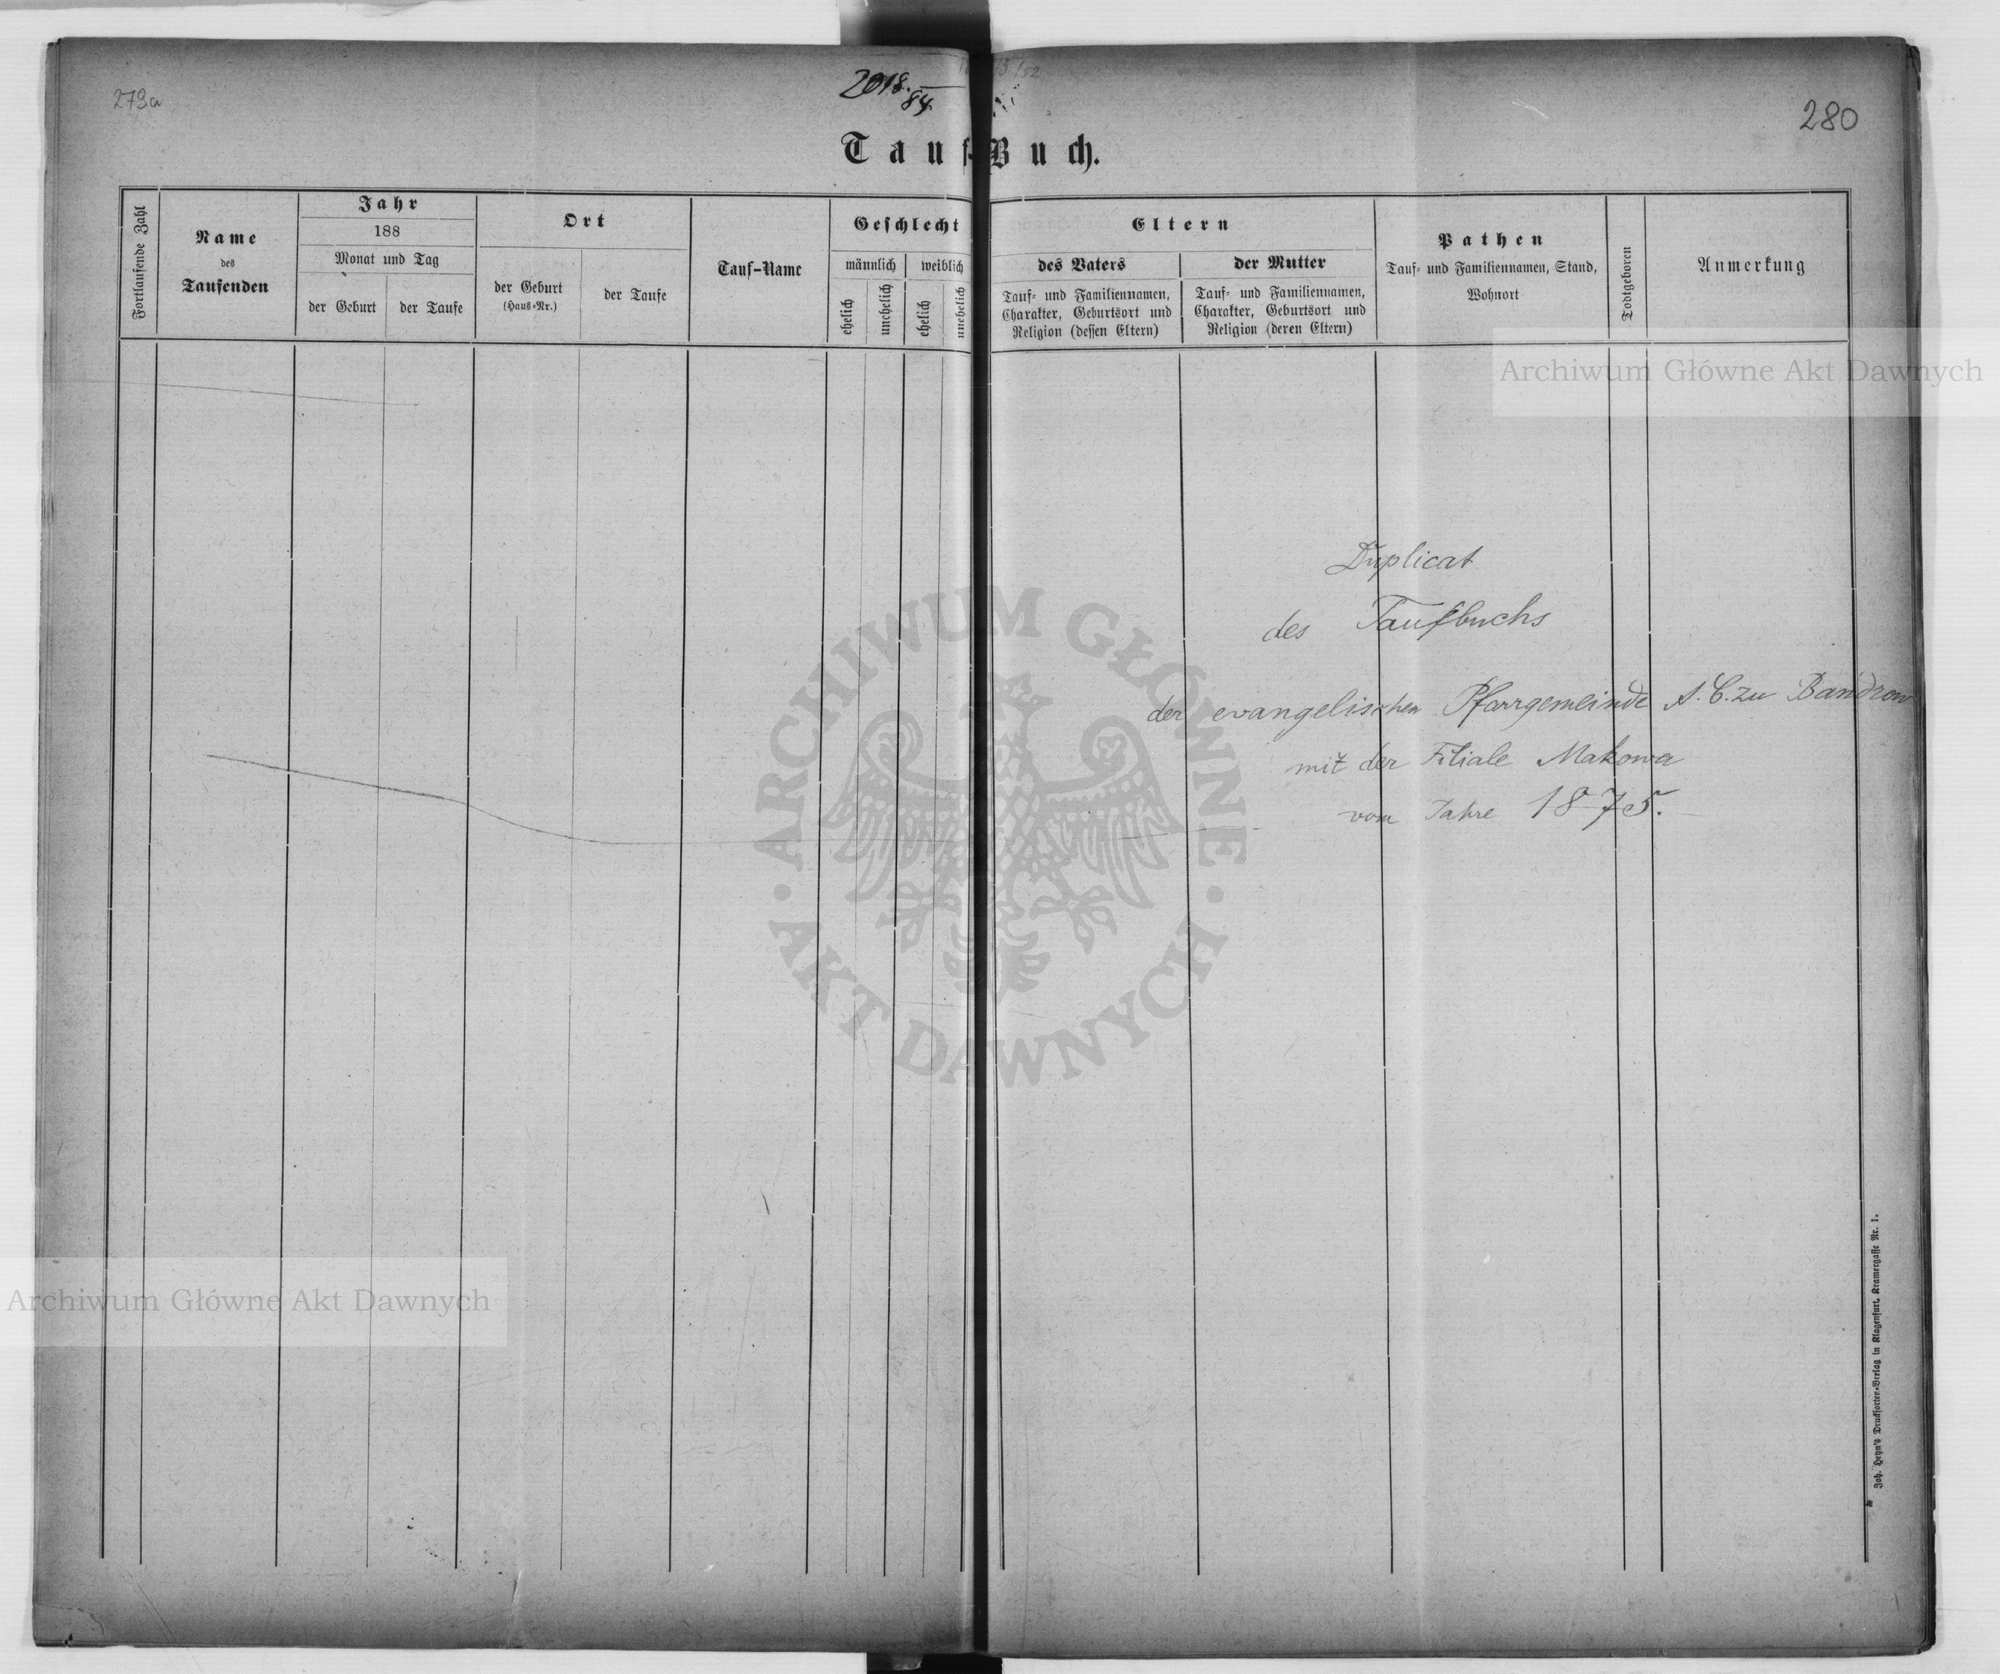 279a
2018.
84.
280
Tauf-Buch.
Fortlaufende Zahl
Name
des
Taufenden
Jahr
188
Monat und Tag
der Geburt
der Taufe
Ort
der Geburt
(Haus=Nr.)
der Taufe
Tauf-Name
Geschlecht
männlich
weiblich
ehelich
unehelich
ehelich
unehelich
Eltern
des Vaters
Tauf= und Familiennamen,
Charakter, Geburtsort und
Religion (dessen Eltern)
der Mutter
Tauf= und Familiennamen,
Charakter, Geburtsort und
Religion (deren Eltern)
Pathen
Tauf= und Familiennamen, Stand,
Wohnort
Todtgeboren
Anmerkung
Archiwum Główne Akt Dawnych
Duplicat
des Taufbuchs
der evangelischen Pfarrgemeinde A. C. zu Bandrow
mit der Filiale Makowa
vom Jahre 1875.
ARCHIWUM GŁÓWNE
AKT DAWNYCH
Archiwum Główne Akt Dawnych
Joh. Heyn's Drucksorten=Verlag in Klagenfurt, Kramergasse Nr. 1.